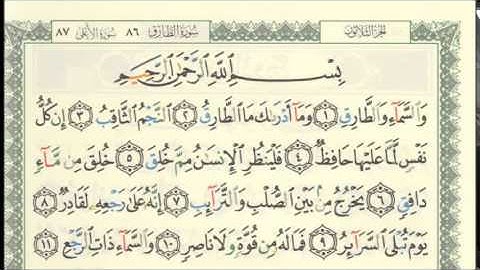 الجزء الثلاثون سورة الطارق ٨٦ سورة الأعلى ٨٧
بِسْمِ ٱللَّهِ ٱلرَّحْمَٰنِ ٱلرَّحِيمِ
وَٱلسَّمَآءِ وَٱلطَّارِقِ ١ وَمَآ أَدْرَىٰكَ مَا ٱلطَّارِقُ ٢ ٱلنَّجْمُ ٱلثَّاقِبُ ٣ إِن كُلُّ
نَفْسٍ لَّمَّا عَلَيْهَا حَافِظٌ ٤ فَلْيَنظُرِ ٱلْإِنسَٰنُ مِمَّ خُلِقَ ٥ خُلِقَ مِن مَّآءٍ
دَافِقٍ ٦ يَخْرُجُ مِنۢ بَيْنِ ٱلصُّلْبِ وَٱلتَّرَآئِبِ ٧ إِنَّهُۥ عَلَىٰ رَجْعِهِۦ لَقَادِرٌ ٨
يَوْمَ تُبْلَى ٱلسَّرَآئِرُ ٩ فَمَا لَهُۥ مِن قُوَّةٍ وَلَا نَاصِرٍ ١٠ وَٱلسَّمَآءِ ذَاتِ ٱلرَّجْعِ ١١